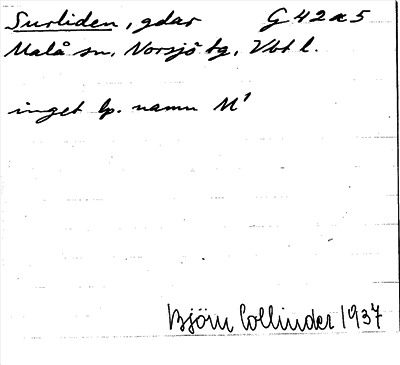 Surliden, gdar G 42 a 5
Malå sn, Norsjö tg, Vbt l.
inget lp. namn M¹
Björn Collinder 1937